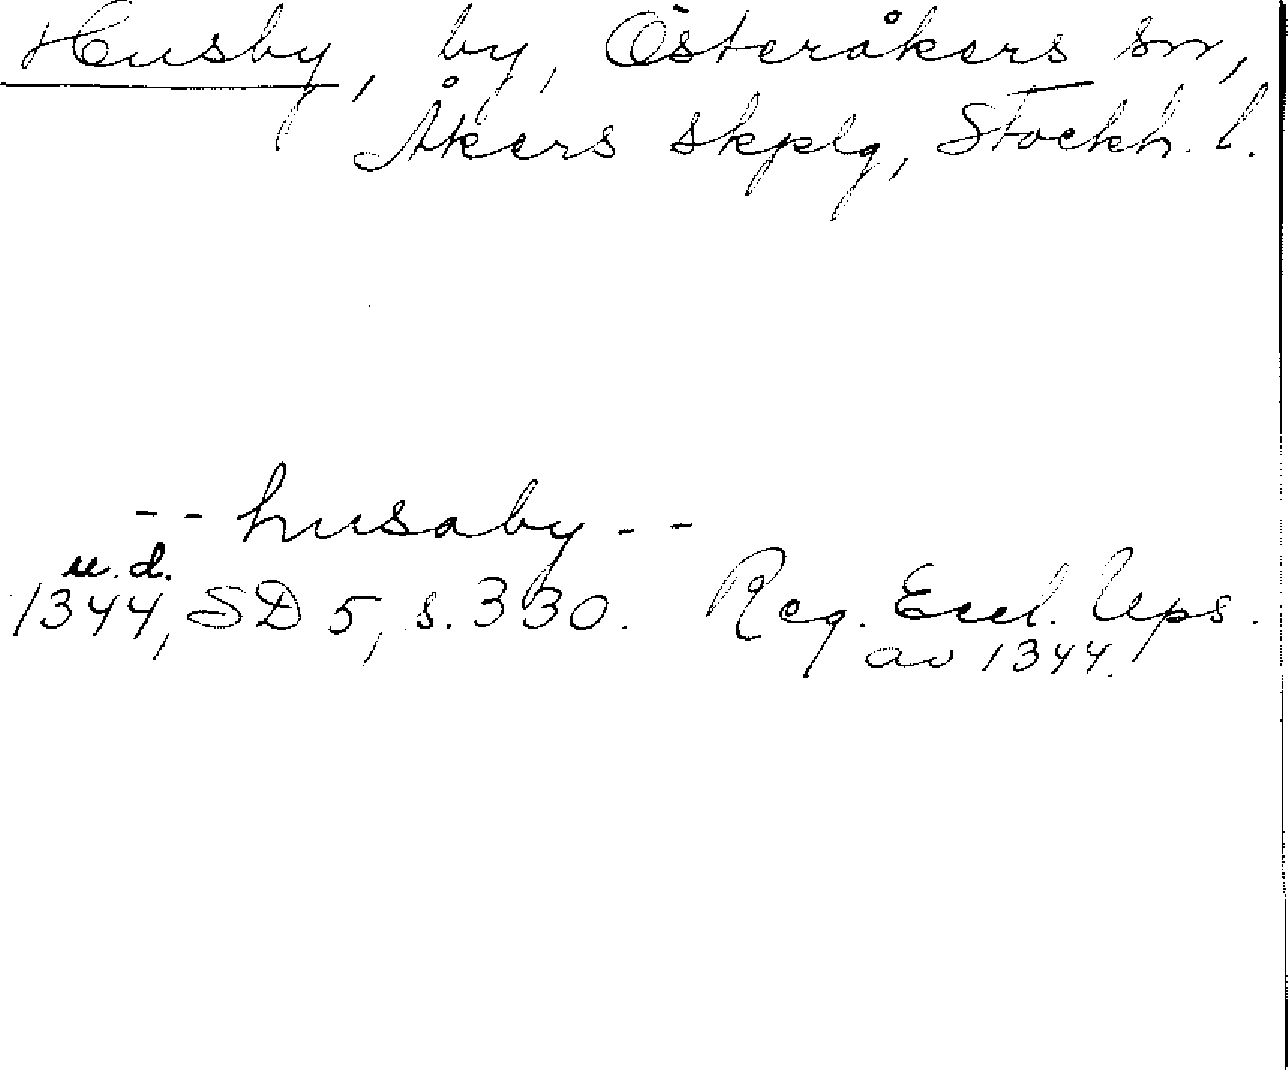 Husby, by, Österåkers sn,
Åkers skplg, Stockh. l.
-- husaby --
u. d.
1344, SD 5, s. 330. Reg. Eccl. Ups.
av 1344.